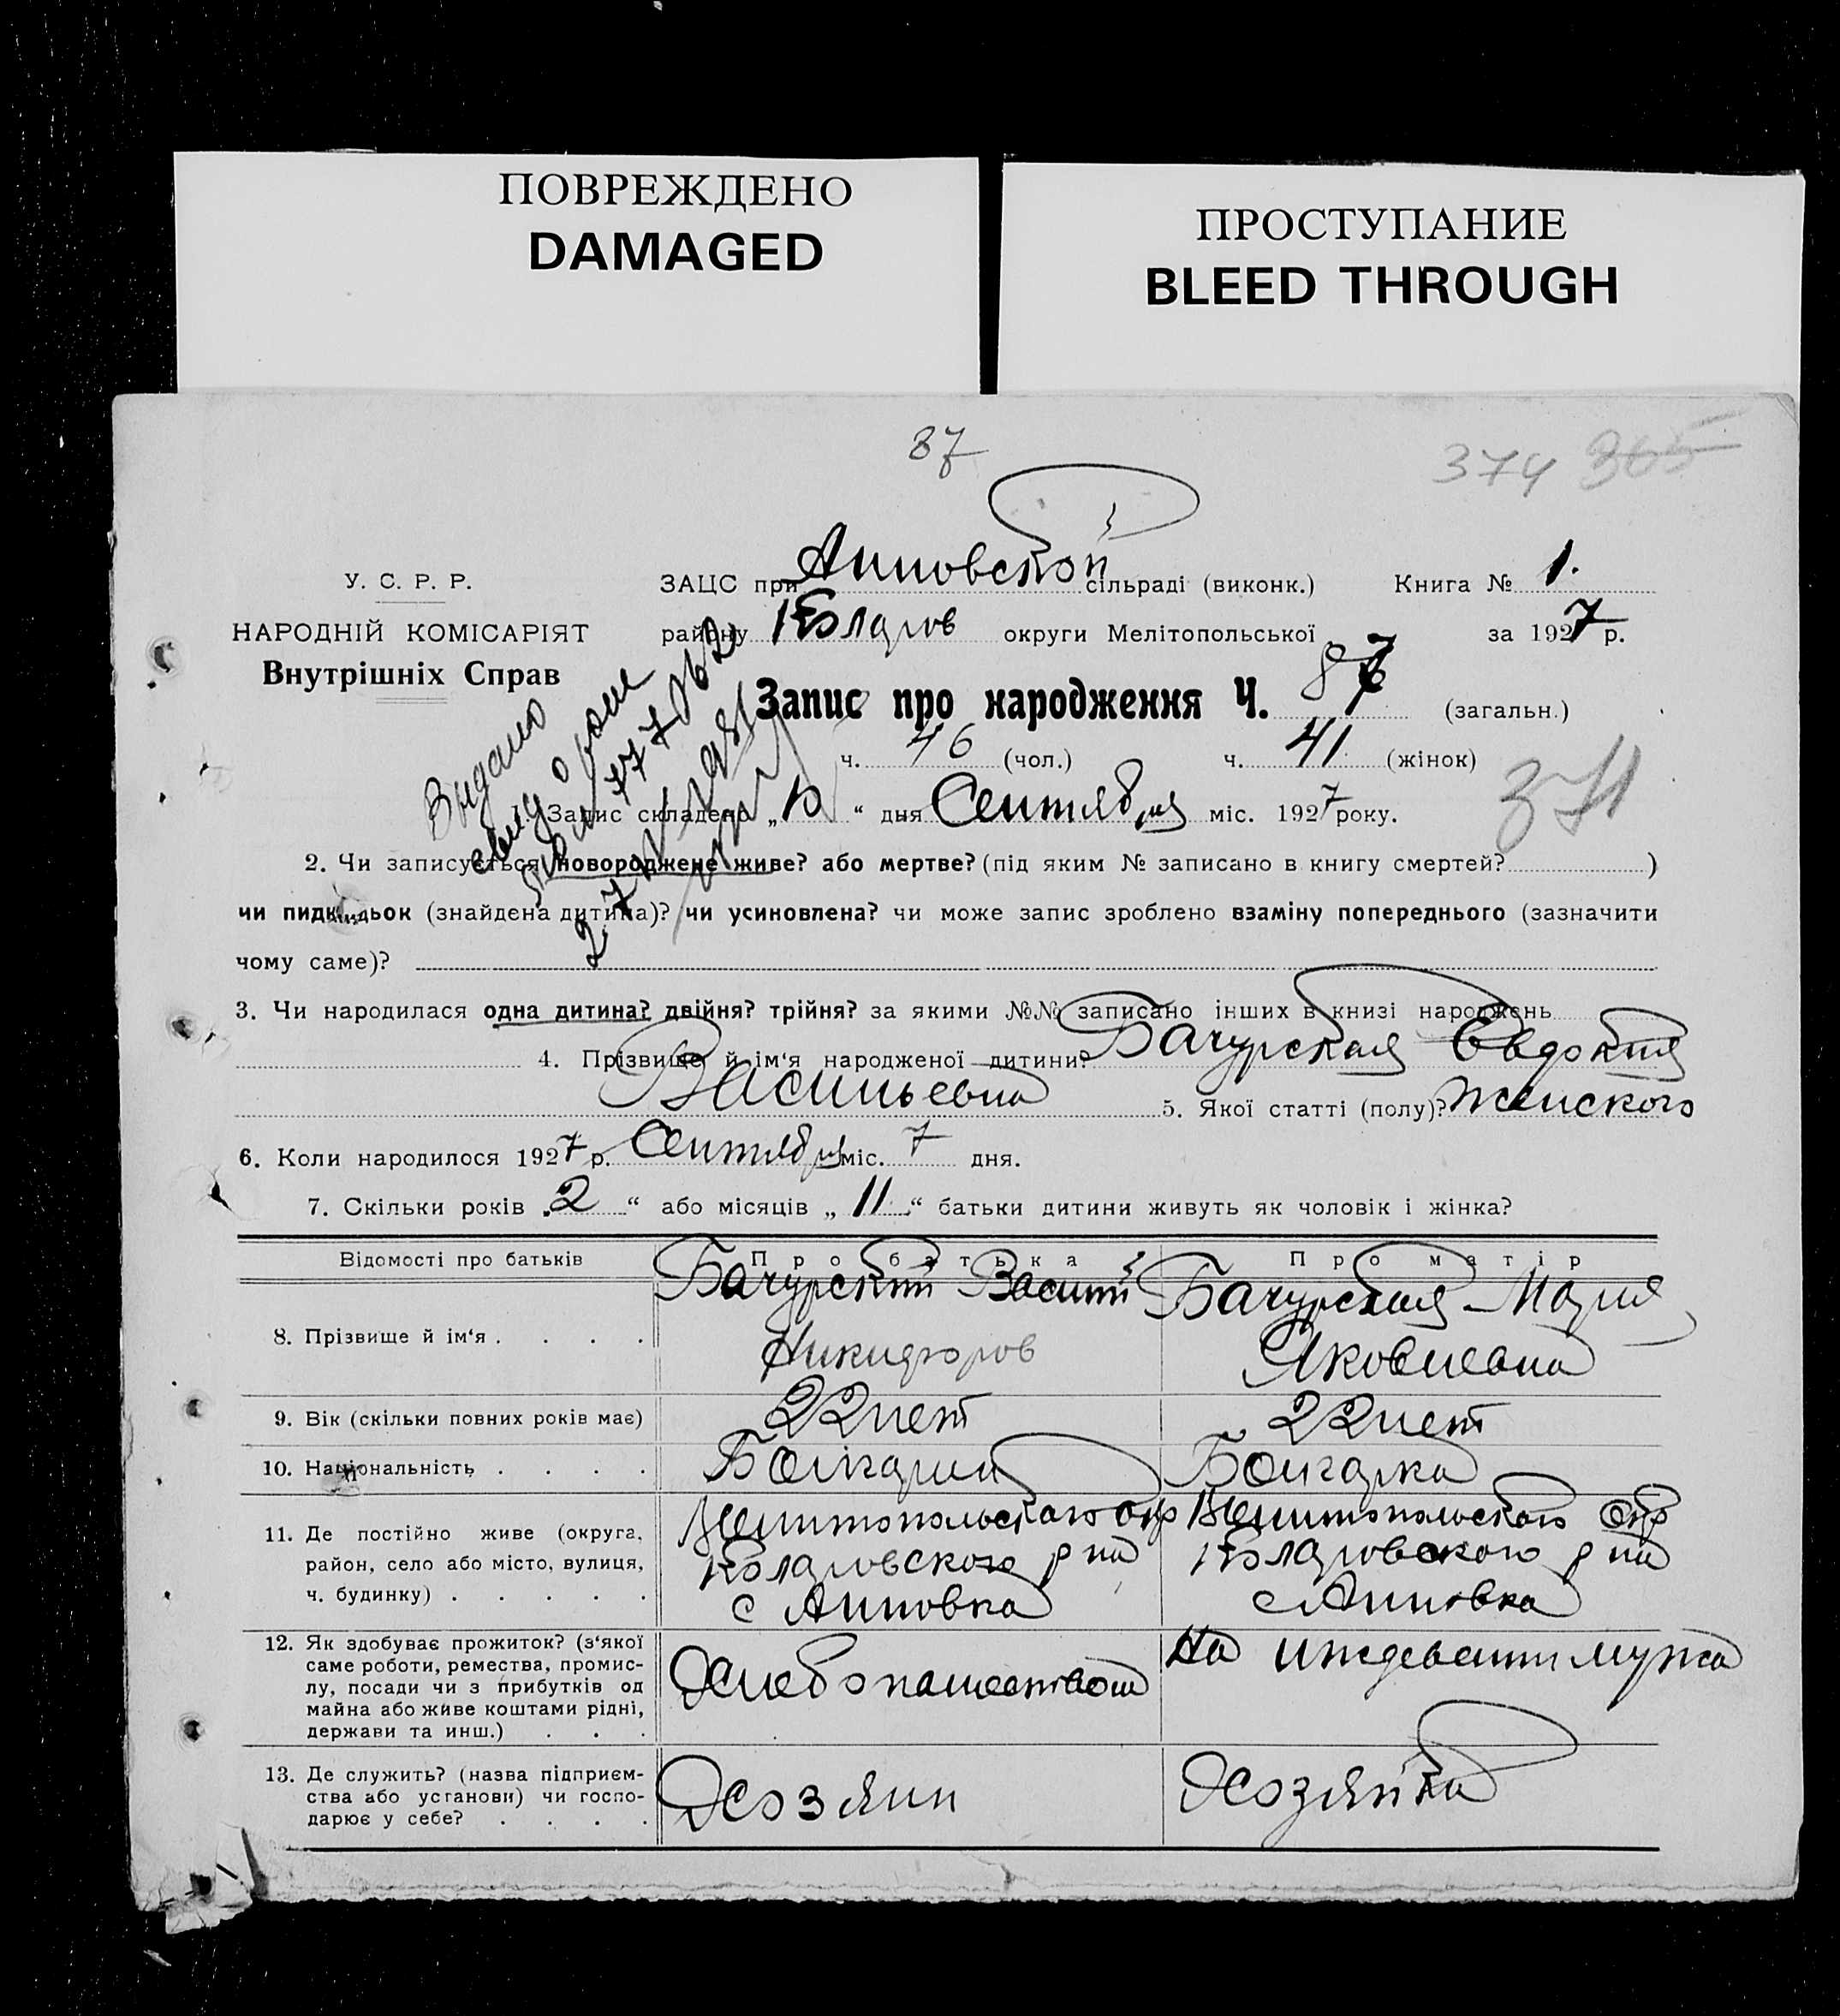 ПОВРЕЖДЕНО
DAMAGED
ПРОСТУПАНИЕ
BLEED THROUGH
87
374 365
У. С. Р. Р.
НАРОДНІЙ КОМІСАРІЯТ
Внутрішніх Справ
ЗАЦС при Анновской сільраді (виконк.) Книга № 1.
району Коларов округи Мелітопольської за 1927 р.
Запис про народження Ч. 87 (загальн.)
ч. 46 (чол.) ч. 41 (жінок)
371
Выдано
Запис складено „ “ дня Сентября міс. 1927 року.
2. Чи записується новороджене живе? або мертве? (під яким № записано в книгу смертей? )
чи пидкидьок (знайдена дитина)? чи усиновлена? чи може запис зроблено взаміну попереднього (зазначити
чому саме)?
3. Чи народилася одна дитина? двійня? трійня? за якими №№ записано інших в книзі народжень
4. Прізвище й ім‘я народженої дитини? Бачурская Евдокия
Васильевна 5. Якої статті (полу)? Женского
6. Коли народилося 1927 р. Сентября міс. 7 дня.
7. Скільки років „2“ або місяців „11“ батьки дитини живуть як чоловік і жінка?
Відомості про батьків Про батька Про матір
8. Прізвище й ім‘я . . . . Бачурский Васили Бачурская Мария
Никифоров Яковлевна
9. Вік (скільки повних років має) 22 лет 22 лет
10. Національність . . . . Болгарин Болгарка
11. Де постійно живе (округа, Мелитопольского окр Мелитопольского Окр
район, село або місто, вулиця, Коларовского р на Коларовского р на
ч. будинку) . . . . . с Анновка с Анновка
12. Як здобуває прожиток? (з‘якої На иждевении мужа
саме роботи, ремества, промис-
лу, посади чи з прибутків од Хлебопашеством
майна або живе коштами рідні,
держави та инш.) . . .
13. Де служить? (назва підприєм-
ства або установи) чи госпо- Хозяин Хозяйка
дарює у себе? . . . .